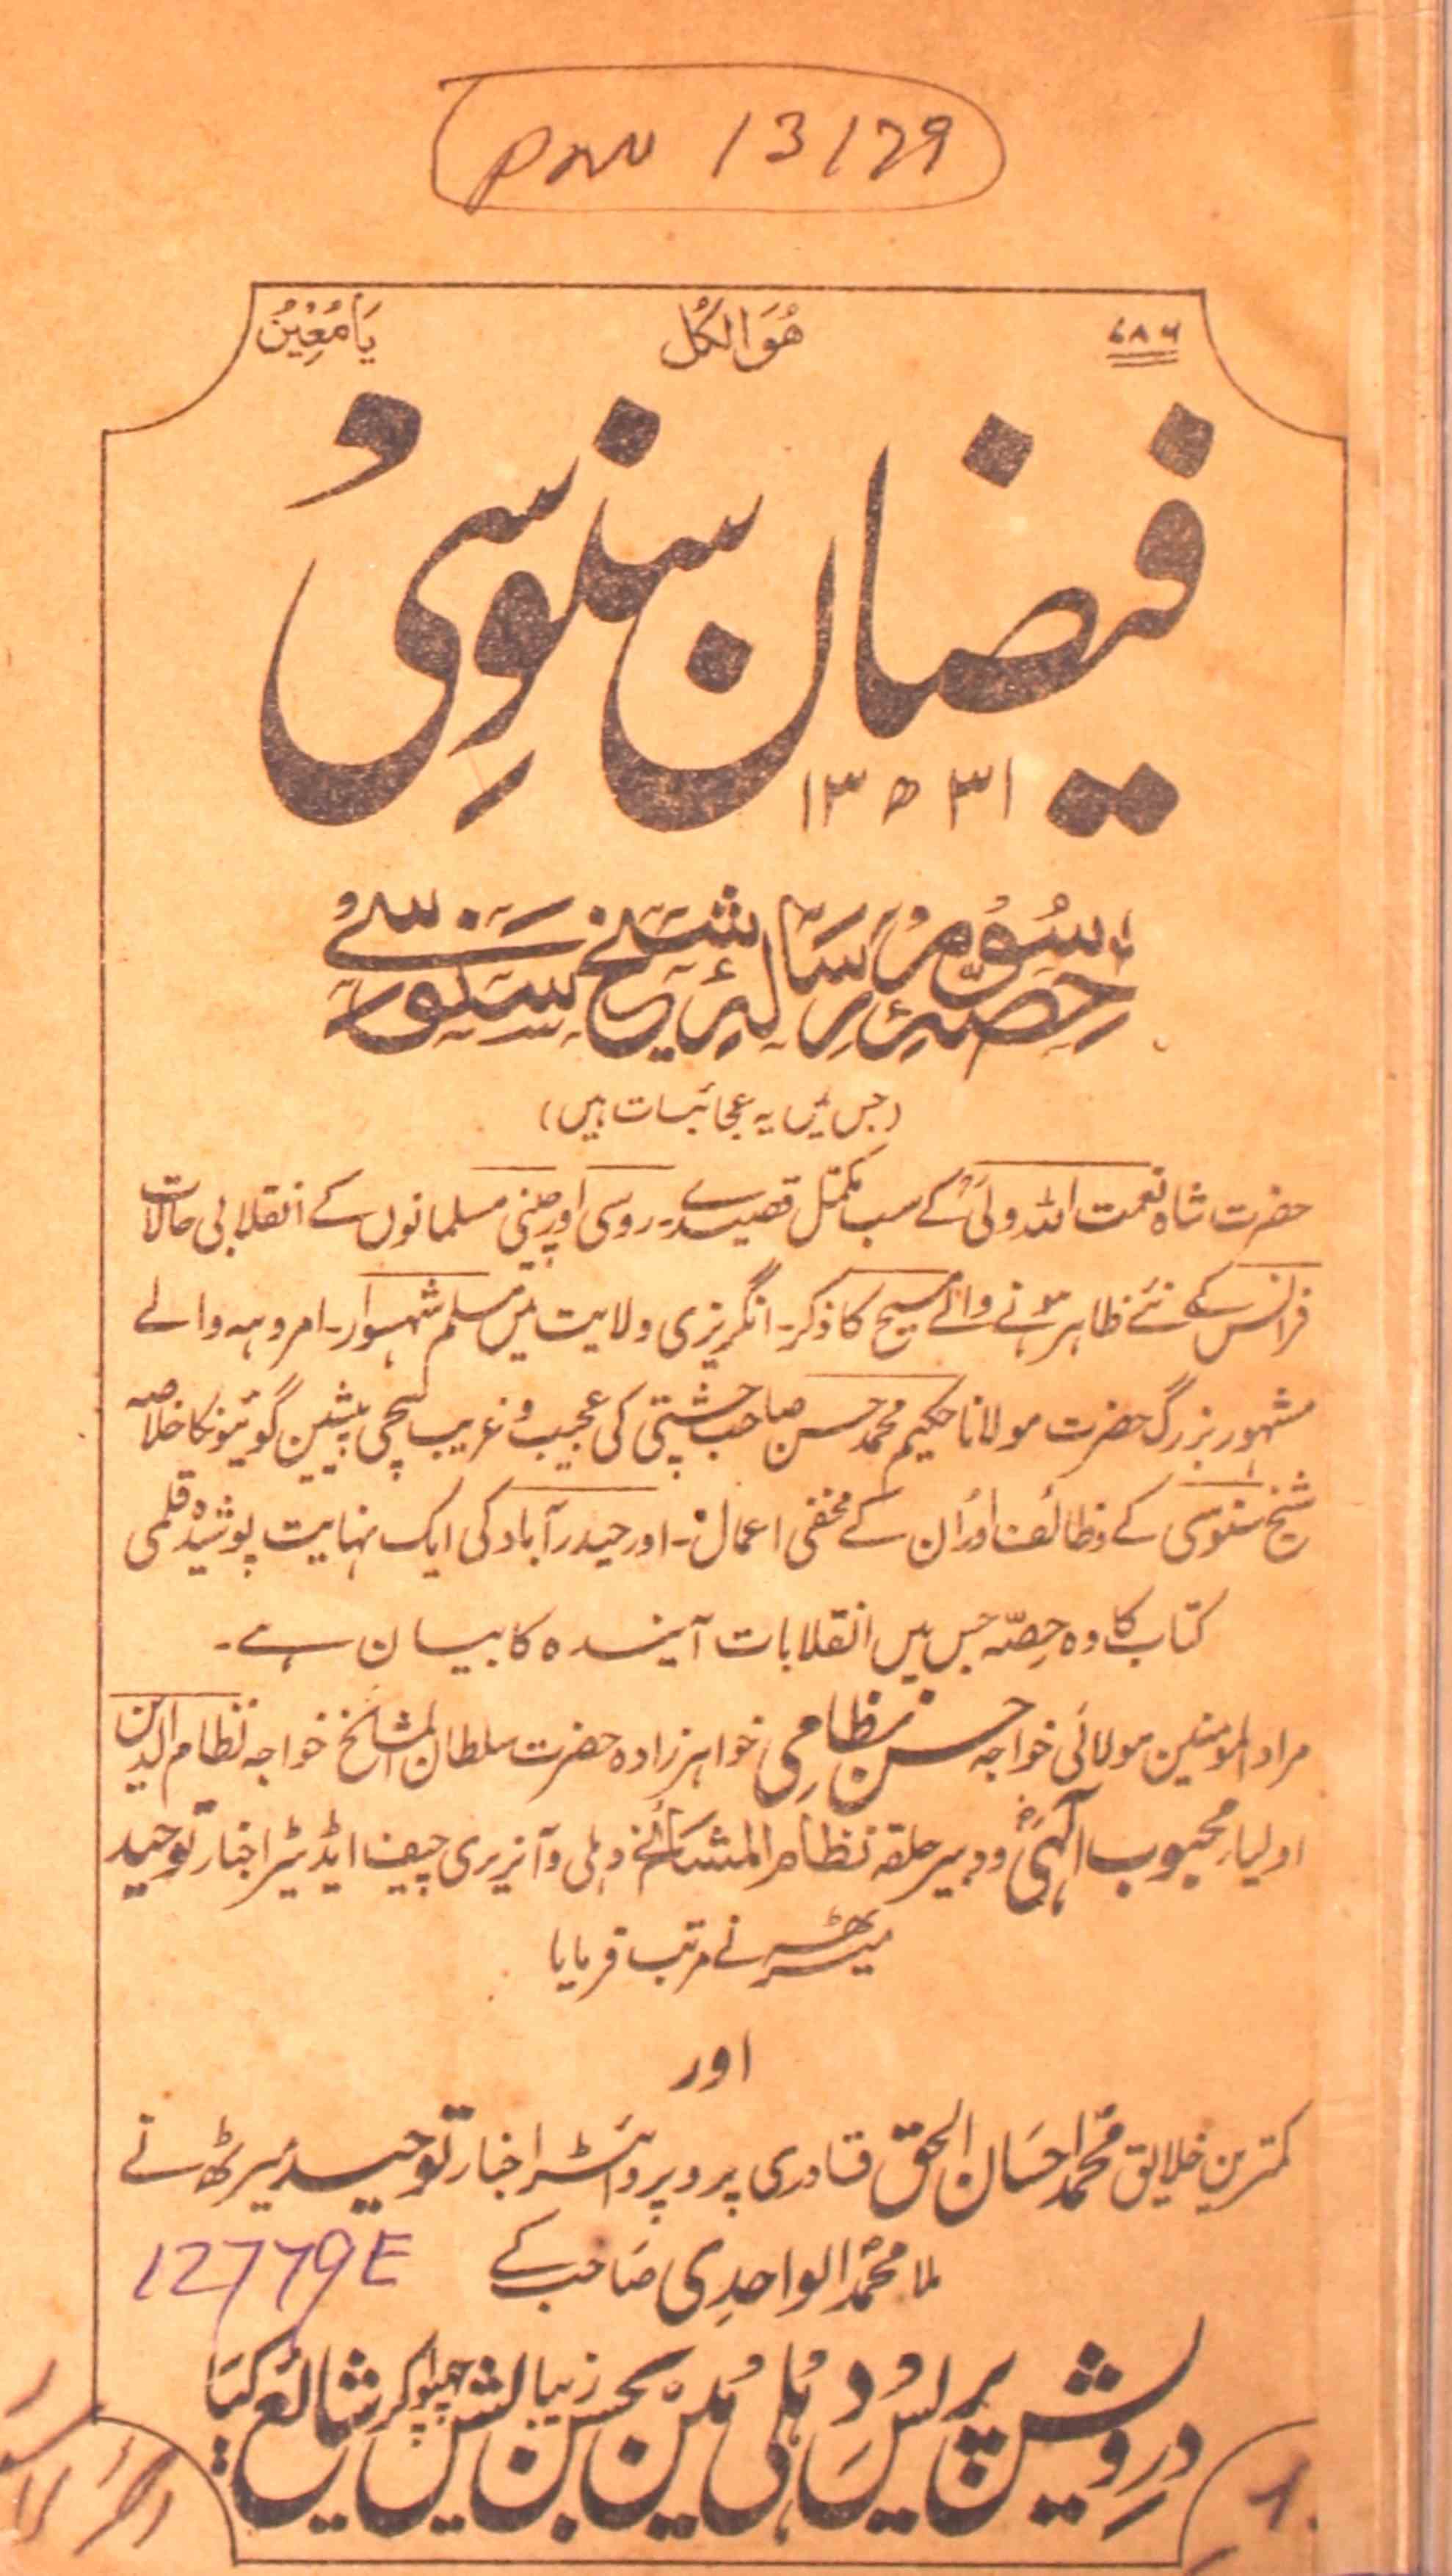 13179
۷۸۶ هُوَ الكُل يَا مُعِينُ
فیضان سنوسی
۱۳۳۱ھ
حصہ سوم رسالہ شیخ سنوسی
(جس میں یہ عجائبات ہیں)
حضرت شاہ نعمت اللہ ولیؒ کے سب مکمل قصیدے۔ روسی اور چینی مسلمانوں کے انقلابی حالات
فرانس کے نئے ظاہر ہونے والے مسیح کا ذکر۔ انگریزی ولایت میں مسلم شہسوار۔ امروہہ والے
مشہور بزرگ حضرت مولانا حکیم محمد حسن صاحب چشتی کی عجیب و غریب سچی پیشین گوئیونکا خلاصہ
شیخ سنوسی کے وظائف اور اُن کے مخفی اعمال۔ اور حیدرآباد کی ایک نہایت پوشیدہ قلمی
کتاب کا وہ حِصّہ جس میں انقلابات آیندہ کا بیان ہے۔
مراد المومنین مولائی خواجہ حسن نظامی خواہرزادہ حضرت سلطان المشائخ خواجہ نظام الدین
اولیاء محبوب الٰہیؒ و دبیر حلقہ نظام المشائخ دہلی و آنریری چیف ایڈیٹر اخبار توحید
میرٹھ نے مرتب فرمایا
اور
کمترین خلایق محمد احسان الحق قادری پروپرائٹر اخبار توحید میرٹھ نے
ملا محمد الواحدی صاحب کے
12779E
درویش پریس دہلی میں بحسن زیبائش چھپوا کر شائع کیا